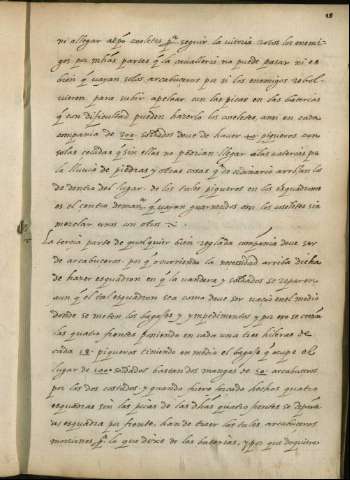 18
ni allegar allá coseletes pa seguir la victoria rotos los enemi-
gos por muchas partes q̃ la cavalleria no puede pasar ni es
bien q̃ vayan solos arcabuceros por si los enemigos rebol-
vieren para subir apelear con las picas en las baterias
q̃ con dificultad pueden hazerlo los coseletes, ansi en cada
compania de 300 soldados deve de haver piqueros con
sus celadas q̃ sin ellas no podrian llegar a las baterias pa
la lluvia de piedras y otras cosas q̃ de ordinario arrojan los
de dentro del lugar. de los tales piqueros en los esquadrones
es el contra q̃ vayan guarnecidos con los coseletes sin
mezclar unos con otros
La tercia parte de qualquier bien reglada compania deve ser
de arcabuceros. por q̃ ocurriendo la necessidad arriba dicha
de hazer esquadron en q̃ la vandera y soldados se reparen
aun q̃ el tal esquadron sea como deve ser vazio en el medio
donde se meten los bagajes y ympedimentos y por eso se
las quatro frentes poniendo en cada una tres hileras de
cada 18 piqueros teniendo en medio el bagaje q̃ ocupe el
lugar de soldados bastan dos mangas de 50 arcabuceros
por los dos costados y quando fuere hechos quatro
esquadras con las picas de las dichas quatro frentes
una esquadra por frente, han de tener los tales arcabuceros
morriones pa lo que dixe de las baterias, y por que